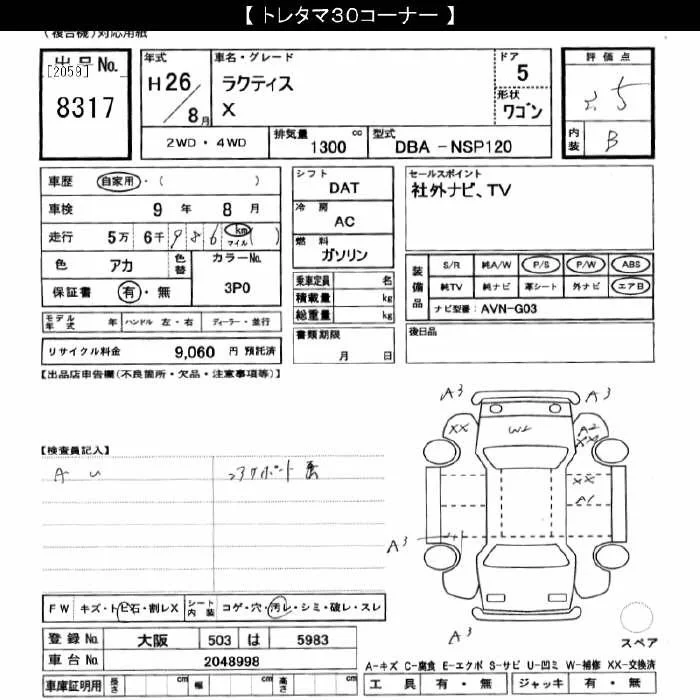 【 トレタマ30コーナー 】
(複合機)対応用紙
出品No.
[2059]
8317
年式
H26／8月
車名・グレード
ラクティス
X
ドア
5
形状
ワゴン
評価点
内装
B
2WD・4WD
排気量
1300 cc
型式
DBA －NSP120
車歴 自家用・( )
車検 9 年 8 月
走行 5万 6千 9 8 6 km マイル ( )
色 アカ 色替 カラーNo. 3P0
保証書 有・無
モデル年式 年 ハンドル 左・右 ディーラー・並行
リサイクル料金 9,060 円 預託済
シフト
DAT
冷房
AC
燃料
ガソリン
乗車定員 名
積載量 kg
総重量 kg
書類期限
月 日
セールスポイント
社外ナビ、TV
装備品
S/R 純A/W P/S P/W ABS
純TV 純ナビ 革シート 外ナビ エアB
ナビ型番: AVN-G03
後日品
【出品店申告欄(不良箇所・欠品・注意事項等)】
【検査員記入】
A U
A3 A3
XX W2 A2
XX
XX
A1
A3
A3
スペア
FW キズ・トビ石・割レX シート内装 コゲ・穴・汚レ・シミ・破レ・スレ
登録No. 大阪 503 は 5983
車台No. 2048998
車庫証明用 長さ cm 幅 cm 高さ cm
A-キズ C-腐食 E-エクボ S-サビ U-凹ミ W-補修 XX-交換済
工具 有・無 ジャッキ 有・無